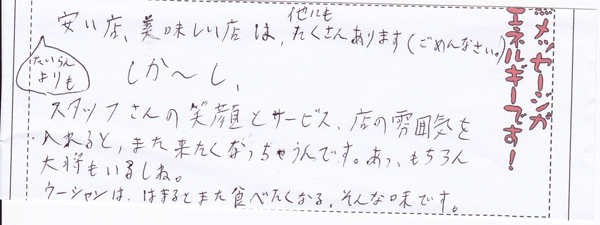 メッセージが
エネルギーです!
他にも
安い店、美味しい店は、たくさんあります(ごめんなさい。)
たいらん
よりも
しか〜し、
スタッフさんの笑顔とサービス、店の雰囲気を
入れると、また来たくなっちゃうんです。あっ、もちろん
大将もいるしね。
ウーシャンは、はまるとまた食べたくなる、そんな味です。